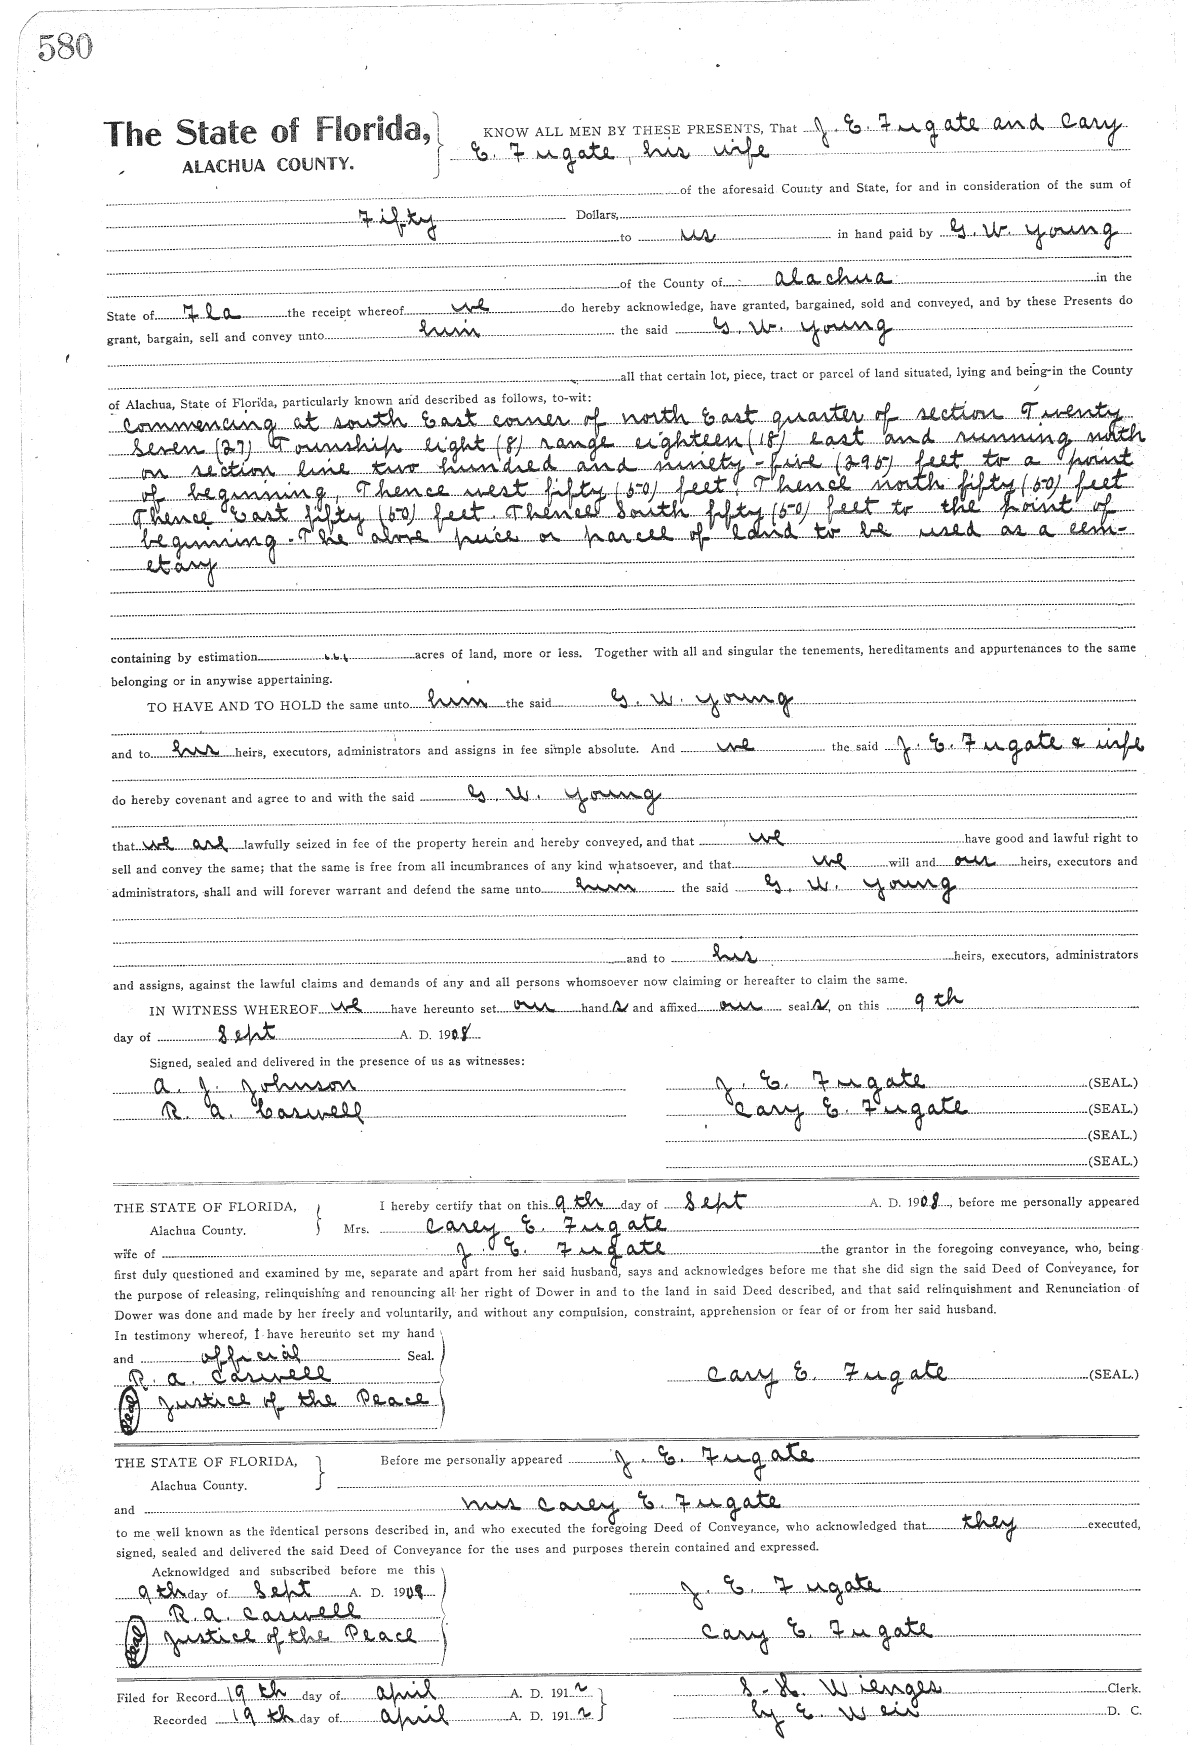 580
The State of Florida, KNOW ALL MEN BY THESE PRESENTS, That J. E. Fugate and Cary
ALACHUA COUNTY. E. Fugate, his wife
of the aforesaid County and State, for and in consideration of the sum of
Fifty Dollars,
to us in hand paid by G. W. Young
of the County of Alachua in the
State of Fla the receipt whereof we do hereby acknowledge, have granted, bargained, sold and conveyed, and by these Presents do
grant, bargain, sell and convey unto him the said G. W. Young
all that certain lot, piece, tract or parcel of land situated, lying and being in the County
of Alachua, State of Florida, particularly known and described as follows, to-wit:
Commencing at south East corner of north East quarter of section Twenty
Seven (27) Township eight (8) range eighteen (18) east and running north
on section line two hundred and ninety-five (295) feet to a point
of beginning, Thence west fifty (50) feet, Thence north fifty (50) feet
Thence East fifty (50) feet. Thence South fifty (50) feet to the point of
beginning. The above piece or parcel of land to be used as a cem-
etary
containing by estimation acres of land, more or less. Together with all and singular the tenements, hereditaments and appurtenances to the same
belonging or in anywise appertaining.
TO HAVE AND TO HOLD the same unto him the said G. W. Young
and to his heirs, executors, administrators and assigns in fee simple absolute. And we the said J. E. Fugate & wife
do hereby covenant and agree to and with the said G. W. Young
that we are lawfully seized in fee of the property herein and hereby conveyed, and that we have good and lawful right to
sell and convey the same; that the same is free from all incumbrances of any kind whatsoever, and that we will and our heirs, executors and
administrators, shall and will forever warrant and defend the same unto him the said G. W. Young
and to his heirs, executors, administrators
and assigns, against the lawful claims and demands of any and all persons whomsoever now claiming or hereafter to claim the same.
IN WITNESS WHEREOF we have hereunto set our hands and affixed our seals, on this 9th
day of Sept A. D. 1908
Signed, sealed and delivered in the presence of us as witnesses:
A. J. Johnson J. E. Fugate (SEAL.)
R. A. Carwell Cary E. Fugate (SEAL.)
(SEAL.)
(SEAL.)
THE STATE OF FLORIDA, I hereby certify that on this 9th day of Sept A. D. 1908, before me personally appeared
Alachua County. Mrs. Carey E. Fugate
wife of J. E. Fugate the grantor in the foregoing conveyance, who, being
first duly questioned and examined by me, separate and apart from her said husband, says and acknowledges before me that she did sign the said Deed of Conveyance, for
the purpose of releasing, relinquishing and renouncing all her right of Dower in and to the land in said Deed described, and that said relinquishment and Renunciation of
Dower was done and made by her freely and voluntarily, and without any compulsion, constraint, apprehension or fear of or from her said husband.
In testimony whereof, I have hereunto set my hand
and official Seal.
R. A. Carwell Cary E. Fugate (SEAL.)
Seal Justice of the Peace
THE STATE OF FLORIDA, Before me personally appeared J. E. Fugate
Alachua County.
and Mrs Carey E. Fugate
to me well known as the identical persons described in, and who executed the foregoing Deed of Conveyance, who acknowledged that they executed,
signed, sealed and delivered the said Deed of Conveyance for the uses and purposes therein contained and expressed.
Acknowldged and subscribed before me this
9th day of Sept A. D. 1908 J. E. Fugate
R. A. Carwell
Seal Justice of the Peace Cary E. Fugate
Filed for Record 19th day of April A. D. 1912 S. H. Wienges Clerk.
Recorded 19th day of April A. D. 1912 by E. Weir D. C.